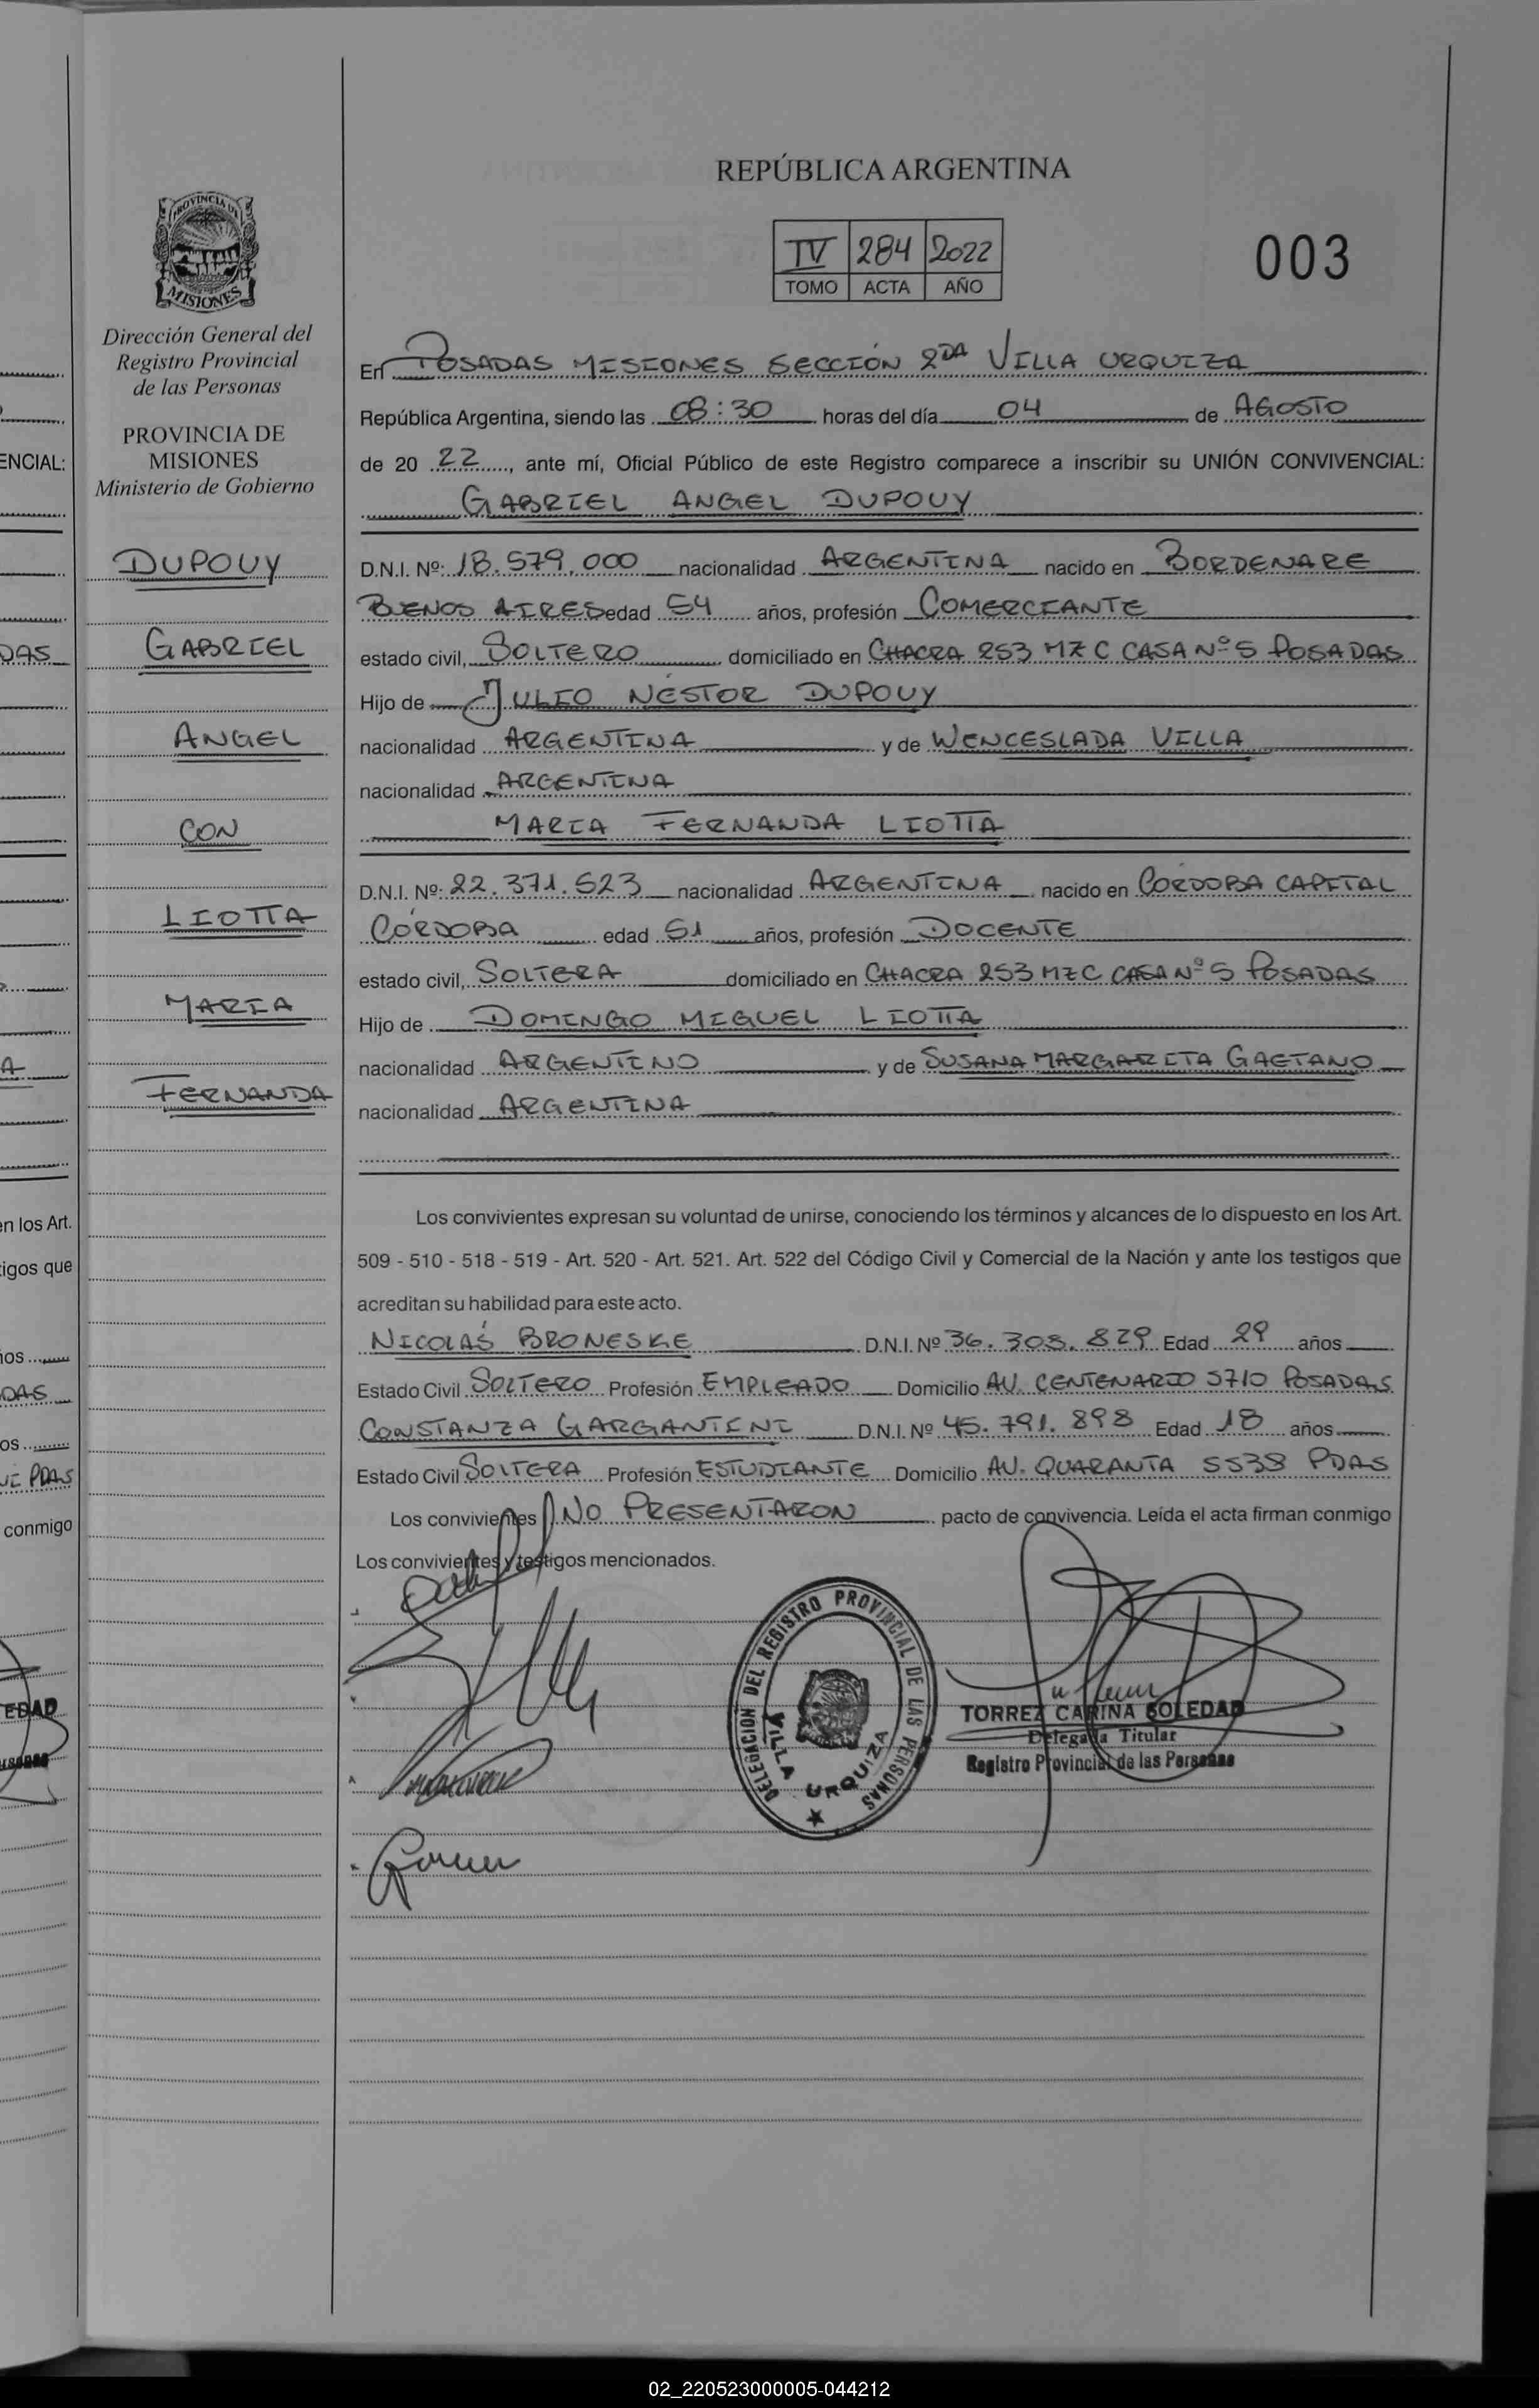 REPÚBLICA ARGENTINA
IV 284 2022
TOMO ACTA AÑO
003
PROVINCIA DE
MISIONES
Dirección General del
Registro Provincial
de las Personas
PROVINCIA DE
MISIONES
Ministerio de Gobierno
DUPOUY
GABRIEL
ANGEL
CON
LIOTTA
MARIA
FERNANDA
En POSADAS MISIONES SECCIÓN 2DA VILLA URQUIZA
República Argentina, siendo las 08:30 horas del día 04 de AGOSTO
de 20 22, ante mí, Oficial Público de este Registro comparece a inscribir su UNIÓN CONVIVENCIAL:
GABRIEL ANGEL DUPOUY
D.N.I. Nº: 18.579.000 nacionalidad ARGENTINA nacido en BORDENARE
BUENOS AIRES edad 54 años, profesión COMERCIANTE
estado civil, SOLTERO domiciliado en CHACRA 253 MZ C CASA Nº 5 POSADAS
Hijo de JULIO NÉSTOR DUPOUY
nacionalidad ARGENTINA y de WENCESLADA VILLA
nacionalidad ARGENTINA
MARIA FERNANDA LIOTTA
D.N.I. Nº: 22.371.523 nacionalidad ARGENTINA nacido en CÓRDOBA CAPITAL
CÓRDOBA edad 51 años, profesión DOCENTE
estado civil, SOLTERA domiciliado en CHACRA 253 MZ C CASA Nº 5 POSADAS
Hijo de DOMINGO MIGUEL LIOTTA
nacionalidad ARGENTINO y de SUSANA MARGARITA GAETANO
nacionalidad ARGENTINA
Los convivientes expresan su voluntad de unirse, conociendo los términos y alcances de lo dispuesto en los Art.
509 - 510 - 518 - 519 - Art. 520 - Art. 521. Art. 522 del Código Civil y Comercial de la Nación y ante los testigos que
acreditan su habilidad para este acto.
NICOLÁS BRONESKE D.N.I. Nº 36.303.829 Edad 29 años
Estado Civil SOLTERO Profesión EMPLEADO Domicilio AV. CENTENARIO 5710 POSADAS
CONSTANZA GARGANTINI D.N.I. Nº 45.791.898 Edad 18 años
Estado Civil SOLTERA Profesión ESTUDIANTE Domicilio AV. QUARANTA 5538 PDAS
Los convivientes NO PRESENTARON pacto de convivencia. Leída el acta firman conmigo
Los convivientes y testigos mencionados.
DELEGACION DEL REGISTRO PROVINCIAL DE LAS PERSONAS
VILLA URQUIZA
TORREZ CARINA SOLEDAD
Delegada Titular
Registro Provincial de las Personas
ENCIAL:
DAS
A
en los Art.
tigos que
ños
DAS
os
PDAS
conmigo
EDAD
02_220523000005-044212